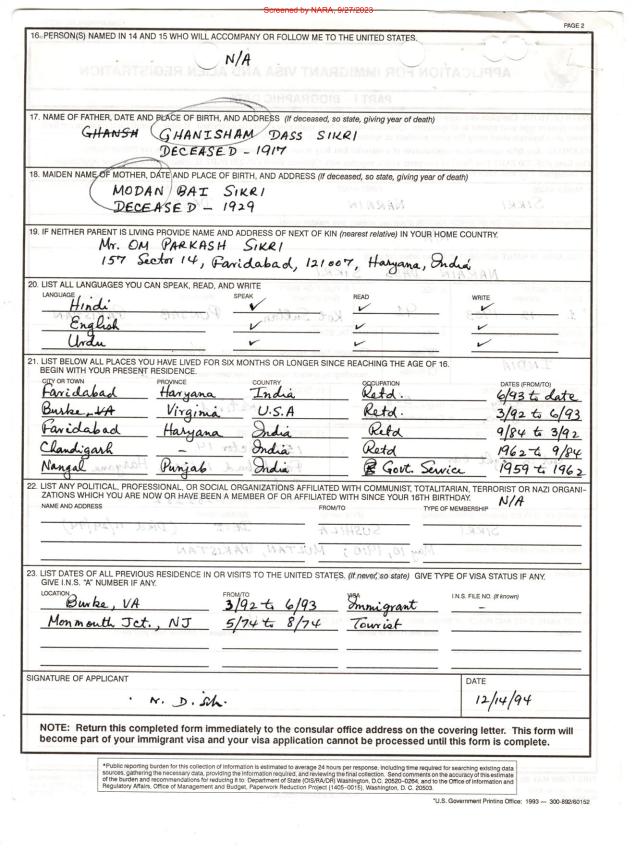 Screened by NARA, 9/27/2023
PAGE 2
16. PERSON(S) NAMED IN 14 AND 15 WHO WILL ACCOMPANY OR FOLLOW ME TO THE UNITED STATES.
N/A
17. NAME OF FATHER, DATE AND PLACE OF BIRTH, AND ADDRESS (If deceased, so state, giving year of death)
GHANSH GHANISHAM DASS SIKRI
DECEASED - 1917
18. MAIDEN NAME OF MOTHER, DATE AND PLACE OF BIRTH, AND ADDRESS (If deceased, so state, giving year of death)
MODAN BAI SIKRI
DECEASED - 1929
19. IF NEITHER PARENT IS LIVING PROVIDE NAME AND ADDRESS OF NEXT OF KIN (nearest relative) IN YOUR HOME COUNTRY.
Mr. OM PARKASH SIKRI
157 Sector 14, Faridabad, 121007, Haryana, India
20. LIST ALL LANGUAGES YOU CAN SPEAK, READ, AND WRITE
LANGUAGE SPEAK READ WRITE
Hindi ✓ ✓ ✓
English ✓ ✓ ✓
Urdu ✓ ✓ ✓
21. LIST BELOW ALL PLACES YOU HAVE LIVED FOR SIX MONTHS OR LONGER SINCE REACHING THE AGE OF 16.
BEGIN WITH YOUR PRESENT RESIDENCE.
CITY OR TOWN PROVINCE COUNTRY OCCUPATION DATES (FROM/TO)
Faridabad Haryana India Retd. 6/93 to date
Burke, VA Virginia U.S.A Retd. 3/92 to 6/93
Faridabad Haryana India Retd 9/84 to 3/92
Chandigarh - India Retd 1962 to 9/84
Nangal Punjab India Govt. Service 1959 to 1962
22. LIST ANY POLITICAL, PROFESSIONAL, OR SOCIAL ORGANIZATIONS AFFILIATED WITH COMMUNIST, TOTALITARIAN, TERRORIST OR NAZI ORGANI-
ZATIONS WHICH YOU ARE NOW OR HAVE BEEN A MEMBER OF OR AFFILIATED WITH SINCE YOUR 16TH BIRTHDAY. N/A
NAME AND ADDRESS FROM/TO TYPE OF MEMBERSHIP
23. LIST DATES OF ALL PREVIOUS RESIDENCE IN OR VISITS TO THE UNITED STATES. (If never, so state) GIVE TYPE OF VISA STATUS IF ANY.
GIVE I.N.S. "A" NUMBER IF ANY.
LOCATION FROM/TO VISA I.N.S. FILE NO. (If known)
Burke, VA 3/92 to 6/93 Immigrant -
Monmouth Jct., NJ 5/74 to 8/74 Tourist
SIGNATURE OF APPLICANT DATE
N. D. 12/14/94
NOTE: Return this completed form immediately to the consular office address on the covering letter. This form will
become part of your immigrant visa and your visa application cannot be processed until this form is complete.
*Public reporting burden for this collection of information is estimated to average 24 hours per response, including time required for searching existing data
sources, gathering the necessary data, providing the information required, and reviewing the final collection. Send comments on the accuracy of this estimate
of the burden and recommendations for reducing it to: Department of State (OIS/RA/DR) Washington, D.C. 20520-0264, and to the Office of Information and
Regulatory Affairs, Office of Management and Budget, Paperwork Reduction Project (1405-0015), Washington, D.C. 20503.
*U.S. Government Printing Office: 1993 — 300-892/60152